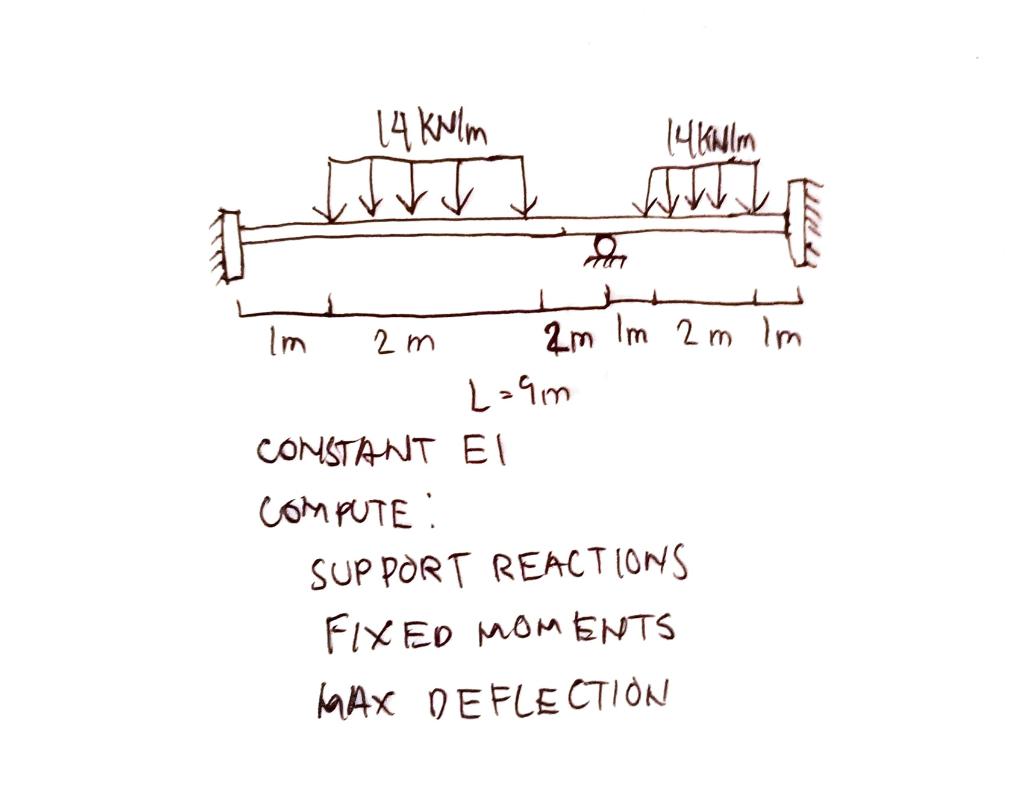 14 KN/m 14 KN/m
1m 2 m 2m 1m 2 m 1m
L = 9m
CONSTANT EI
COMPUTE:
SUPPORT REACTIONS
FIXED MOMENTS
MAX DEFLECTION